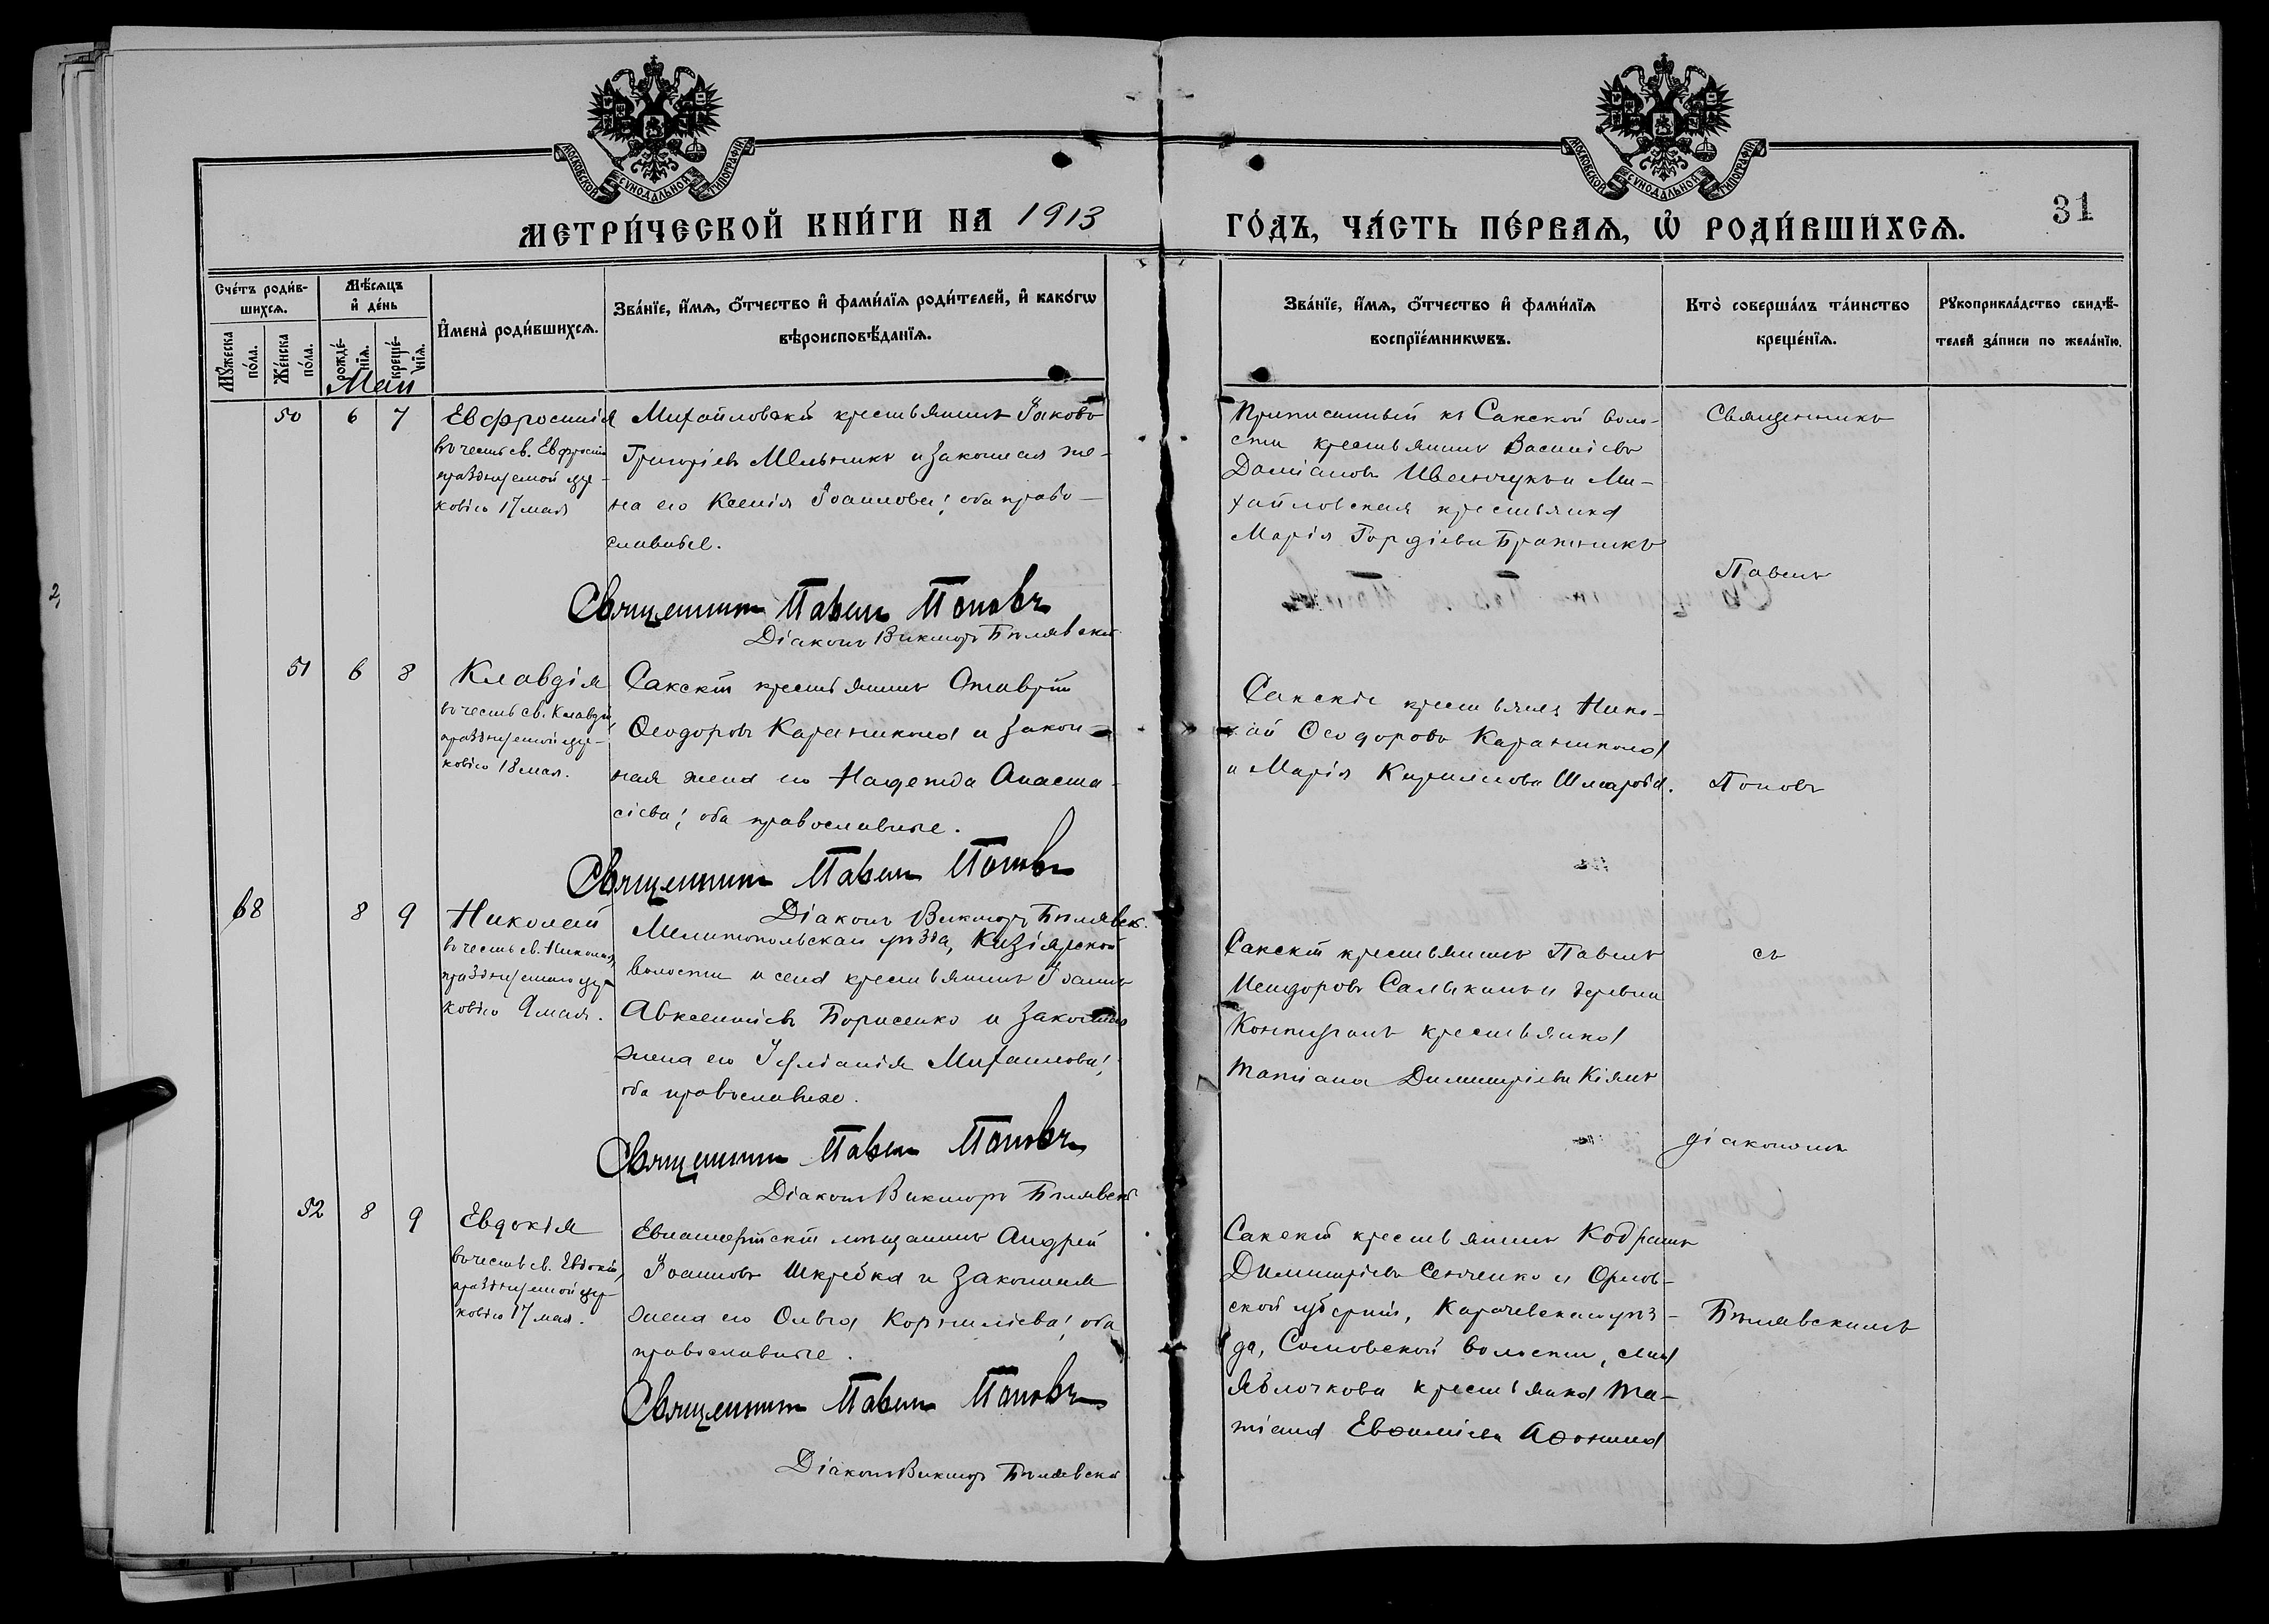 МОСКОВСКОЙ СѴНОДАЛЬНОЙ ТИПОГРАФІИ
МОСКОВСКОЙ СѴНОДАЛЬНОЙ ТИПОГРАФІИ
МЕТРИ́ЧЕСКОЙ КНИ́ГИ НА 1913
ГО́ДЪ, ЧА́СТЬ ПЕ́РВАѦ, Ѽ РОДИ́ВШИХСѦ.
31
Сче́тъ роди́в-
шихсѧ.
Мꙋ́жеска
по́ла.
Же́нска
по́ла.
Мѣ́сѧцъ
и҆ де́нь
рожде́-
нїѧ.
креще́-
нїѧ.
И҆мена̀ роди́вшихсѧ.
Зва́нїе, и҆́мѧ, ѻ҆́тчество и҆ фами́лїѧ роди́телей, и҆ како́гѡ
вѣроисповѣ́данїѧ.
Зва́нїе, и҆́мѧ, ѻ҆́тчество и҆ фами́лїѧ
воспрїе́мникѡвъ.
Кто̀ соверша́лъ та́инство
креще́нїѧ.
Рꙋкоприкла́дство свидѣ́-
телей за́писи по жела́нїю.
Май
50 6 7
Евфросинія
въ честь св. Евфросиніи
празднуемой цер-
ковію 17 мая
Михайловскій крестьянинъ Іаковъ
Григоріевъ Мельникъ и законная же-
на его Ксенія Іоаннова; оба право-
славные.
Священникъ Павелъ Поповъ
Діаконъ Викторъ Бѣлявскій
Приписанный къ Сакской воло-
сти крестьянинъ Василій
Даміановъ Иванчукъ и Ми-
хайловская крестьянка
Марія Гордіева Бражникъ
Священникъ
Павелъ
51 6 8
Клавдія
въ честь св. Клавдіи,
празднуемой цер-
ковію 18 мая.
Сакскій крестьянинъ Ставрій
Ѳеодоровъ Караникола и закон-
ная жена его Надежда Анаста-
сіева; оба православные.
Священникъ Павелъ Поповъ
Діаконъ Викторъ Бѣлявск.
Сакскіе крестьяне Нико-
лай Ѳеодоровъ Караникола
и Марія Кириллова Шмарова.
Поповъ
68 8 9
Николай
въ честь св. Николая,
празднуемаго цер-
ковію 9 мая.
Мелитопольскаго уѣзда, Кизіярской
волости и села крестьянинъ Іоаннъ
Авксентіевъ Борисенко и законная
жена его Іуліанія Михаилова;
оба православные.
Священникъ Павелъ Поповъ
Діаконъ Викторъ Бѣлявскій
Сакскій крестьянинъ Павелъ
Исидоровъ Салыкинъ и деревни
Контуганъ крестьянка
Татіана Димитріева Кіянъ
съ
діакономъ
52 8 9
Евдокія
въ честь св. Евдокіи,
празднуемой цер-
ковію 17 мая.
Евпаторійскій мѣщанинъ Андрей
Іоанновъ Шкребка и законная
жена его Ольга Корниліева; оба
православные.
Священникъ Павелъ Поповъ
Діаконъ Викторъ Бѣлявскій
Сакскій крестьянинъ Кодратъ
Димитріевъ Сенченко и Орлов-
ской губерніи, Карачевскаго уѣз-
да, Сомовской волости, села
Яблочкова крестьянка Та-
тіана Евѳиміева Аѳонина
Бѣлявскимъ